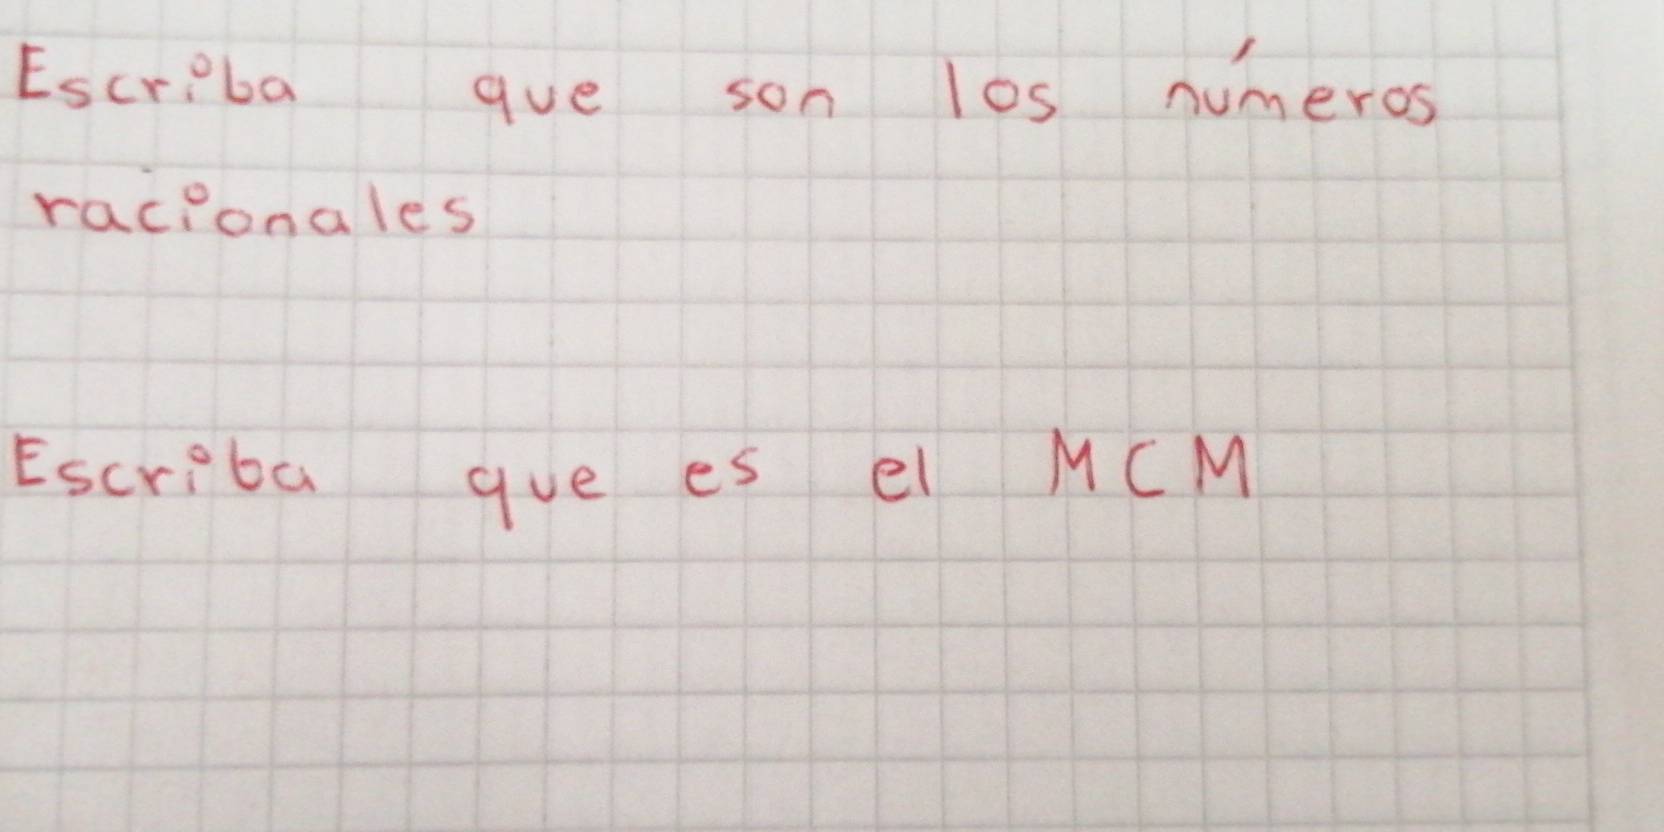 Escriba que son los números
racionales
Escriba que es el MCM